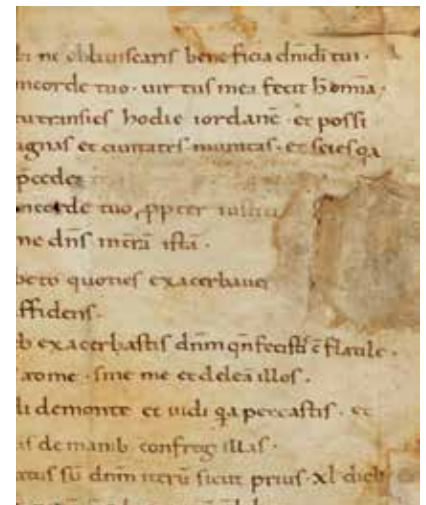 ne obliuiscaris beneficia dñidi tui·
incorde tuo· uirtus mea fecit h̄ om̄ia·
transies hodie iordanē· et possi
agnas et ciuitates munitas· et scies qa
p̄cedet
incorde tuo, ꝓpter iusti
me dñs interrā istā·
quoties exacerbaue
ffidens·
b exacerbastis dn̄m qn̄ fecistis ē flatile·
rome· sine me et deleā illos·
di demonte et uidi qa peccastis· et
is de manib confreg illas·
sū dn̄m iterū sicut prius· xl dieb